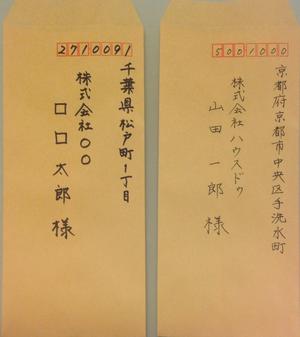 2710091
千葉県松戸町1丁目
株式会社〇〇
口口太郎様
5001000
京都府京都市中央区手洗水町
株式会社ハウスドゥ
山田一郎様